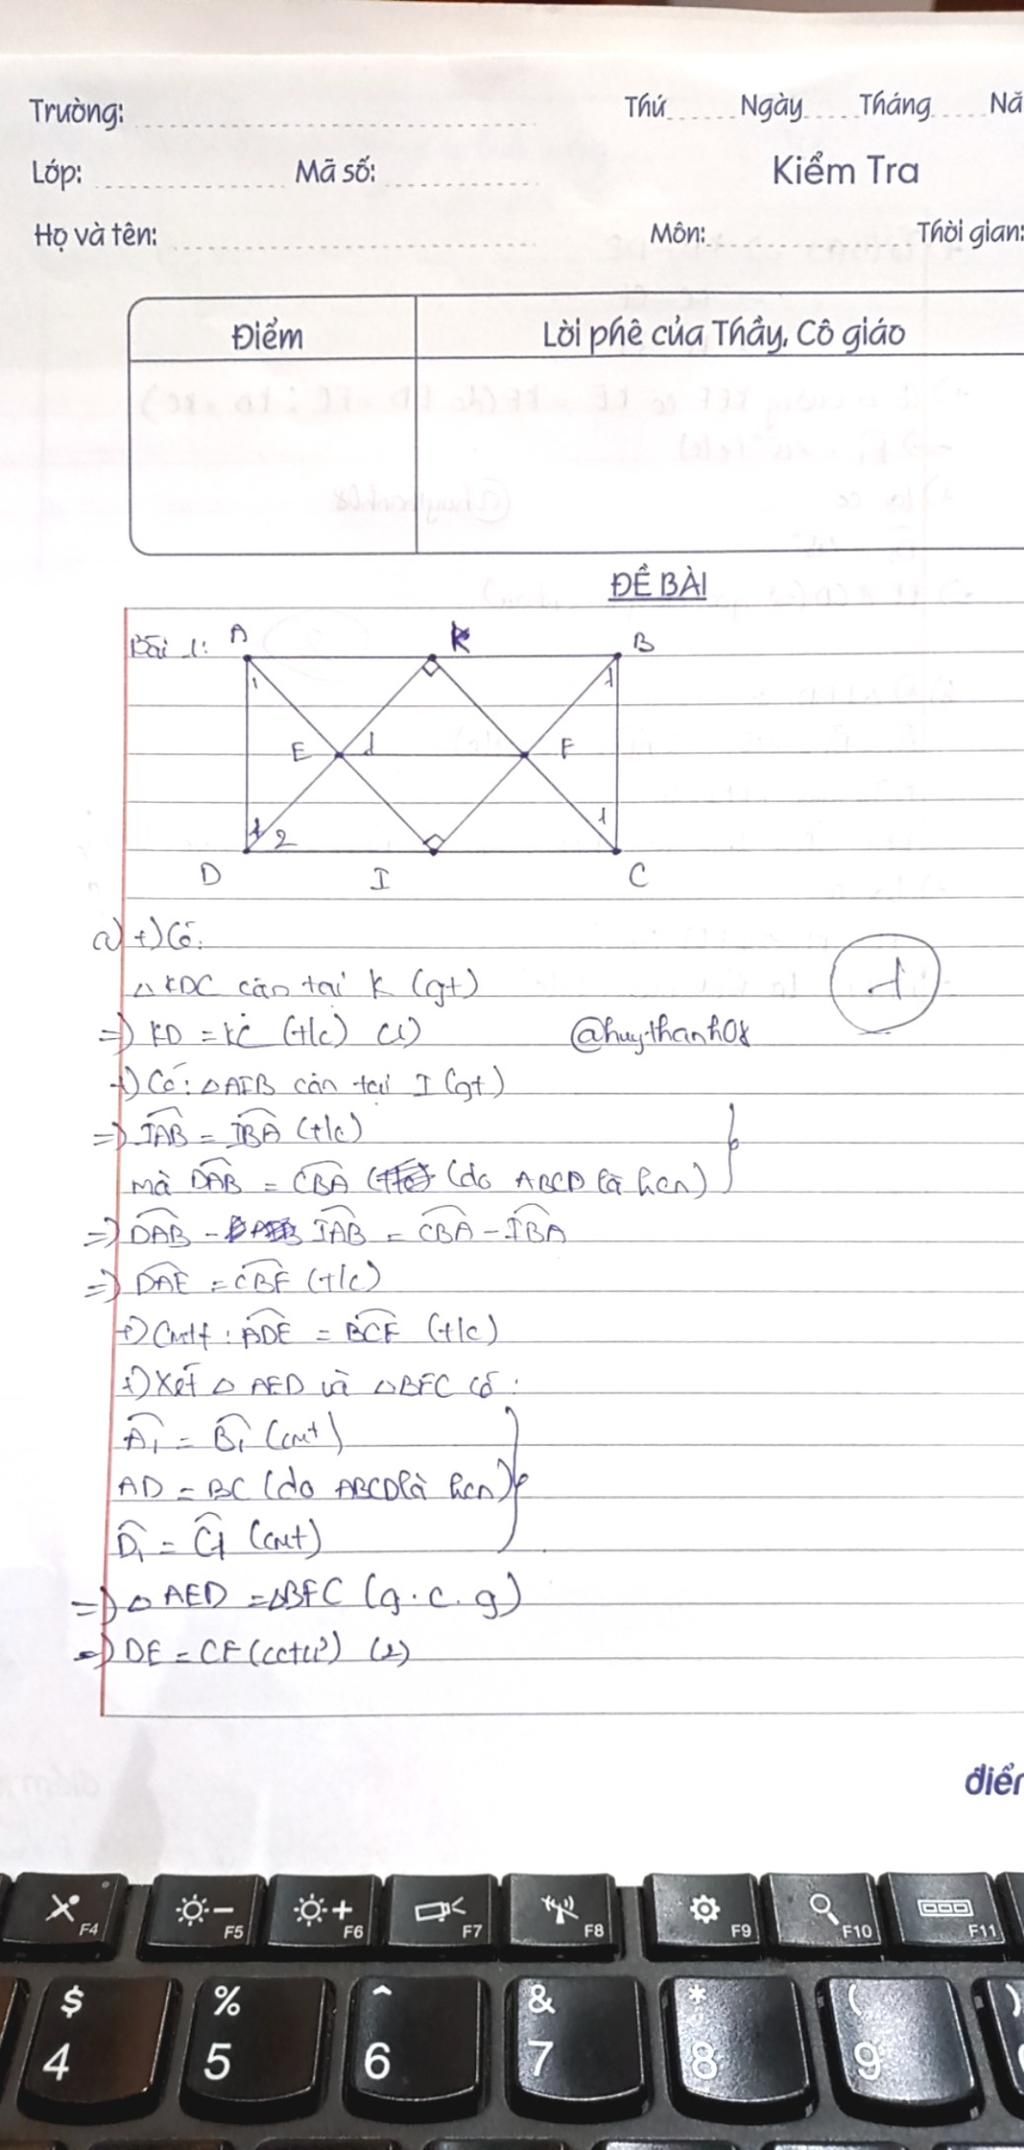 Trường: Thứ Ngày Tháng Nă
Lớp: Mã số: Kiểm Tra
Họ và tên: Môn: Thời gian:
Điểm Lời phê của Thầy, Cô giáo
ĐỀ BÀI
Bài 1: A K B
1 1
E 1 F
1 2 1
D I C
a) +) Có:
△KDC cân tại K (gt)
=) KD = KC (t/c) (1) @huythanh08
1
+) Có: △AIB cân tại I (gt)
=) IAB = IBA (t/c)
mà DAB = CBA (do ABCD là hcn)
=) DAB - IAB = CBA - IBA
=) DAE = CBF (t/c)
+) Cmtt: ADE = BCF (t/c)
+) Xét △ AED và △BFC có:
A1 = B1 (cmt)
AD = BC (do ABCD là hcn)
D1 = C1 (cmt)
=) △ AED = △BFC (g.c.g)
=) DE = CF (2)
điểm
F4 F5 F6 F7 F8 F9 F10 F11
$ % ^ & * ( )
4 5 6 7 8 9